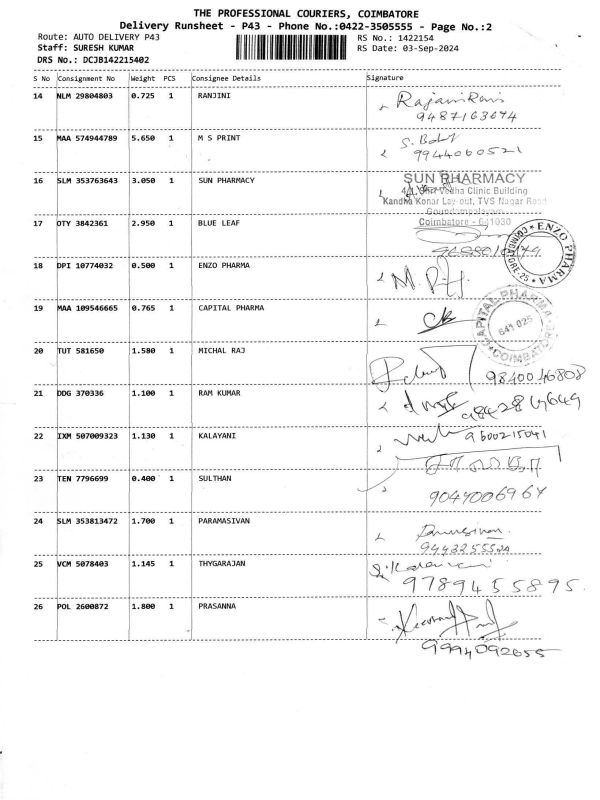 THE PROFESSIONAL COURIERS, COIMBATORE
Delivery Runsheet - P43 - Phone No.:0422-3505555 - Page No.:2
Route: AUTO DELIVERY P43 RS No.: 1422154
Staff: SURESH KUMAR RS Date: 03-Sep-2024
DRS No.: DCJB142215402
S No Consignment No Weight PCS Consignee Details Signature
14 NLM 29804803 0.725 1 RANJINI
9487163674
15 MAA 574944789 5.650 1 M S PRINT
9944060521
16 SLM 353763643 3.050 1 SUN PHARMACY SUN PHARMACY
Clinic Building
Kandha Konar Lay-out, TVS Nagar Road
Goundampalayam
Coimbatore - 641030
17 OTY 3842361 2.950 1 BLUE LEAF
ENZO PHARMA
COIMBATORE-25
18 DPI 10774032 0.500 1 ENZO PHARMA
19 MAA 109546665 0.765 1 CAPITAL PHARMA
CAPITAL PHARMA
641 025
COIMBATORE
20 TUT 581650 1.580 1 MICHAL RAJ
9840046808
21 DDG 370336 1.100 1 RAM KUMAR
22 IXM 507009323 1.130 1 KALAYANI 9600215041
23 TEN 7796699 0.400 1 SULTHAN
9047006967
24 SLM 353813472 1.700 1 PARAMASIVAN
25 VCM 5078403 1.145 1 THYGARAJAN
9789455895
26 POL 2600872 1.800 1 PRASANNA
9994092655